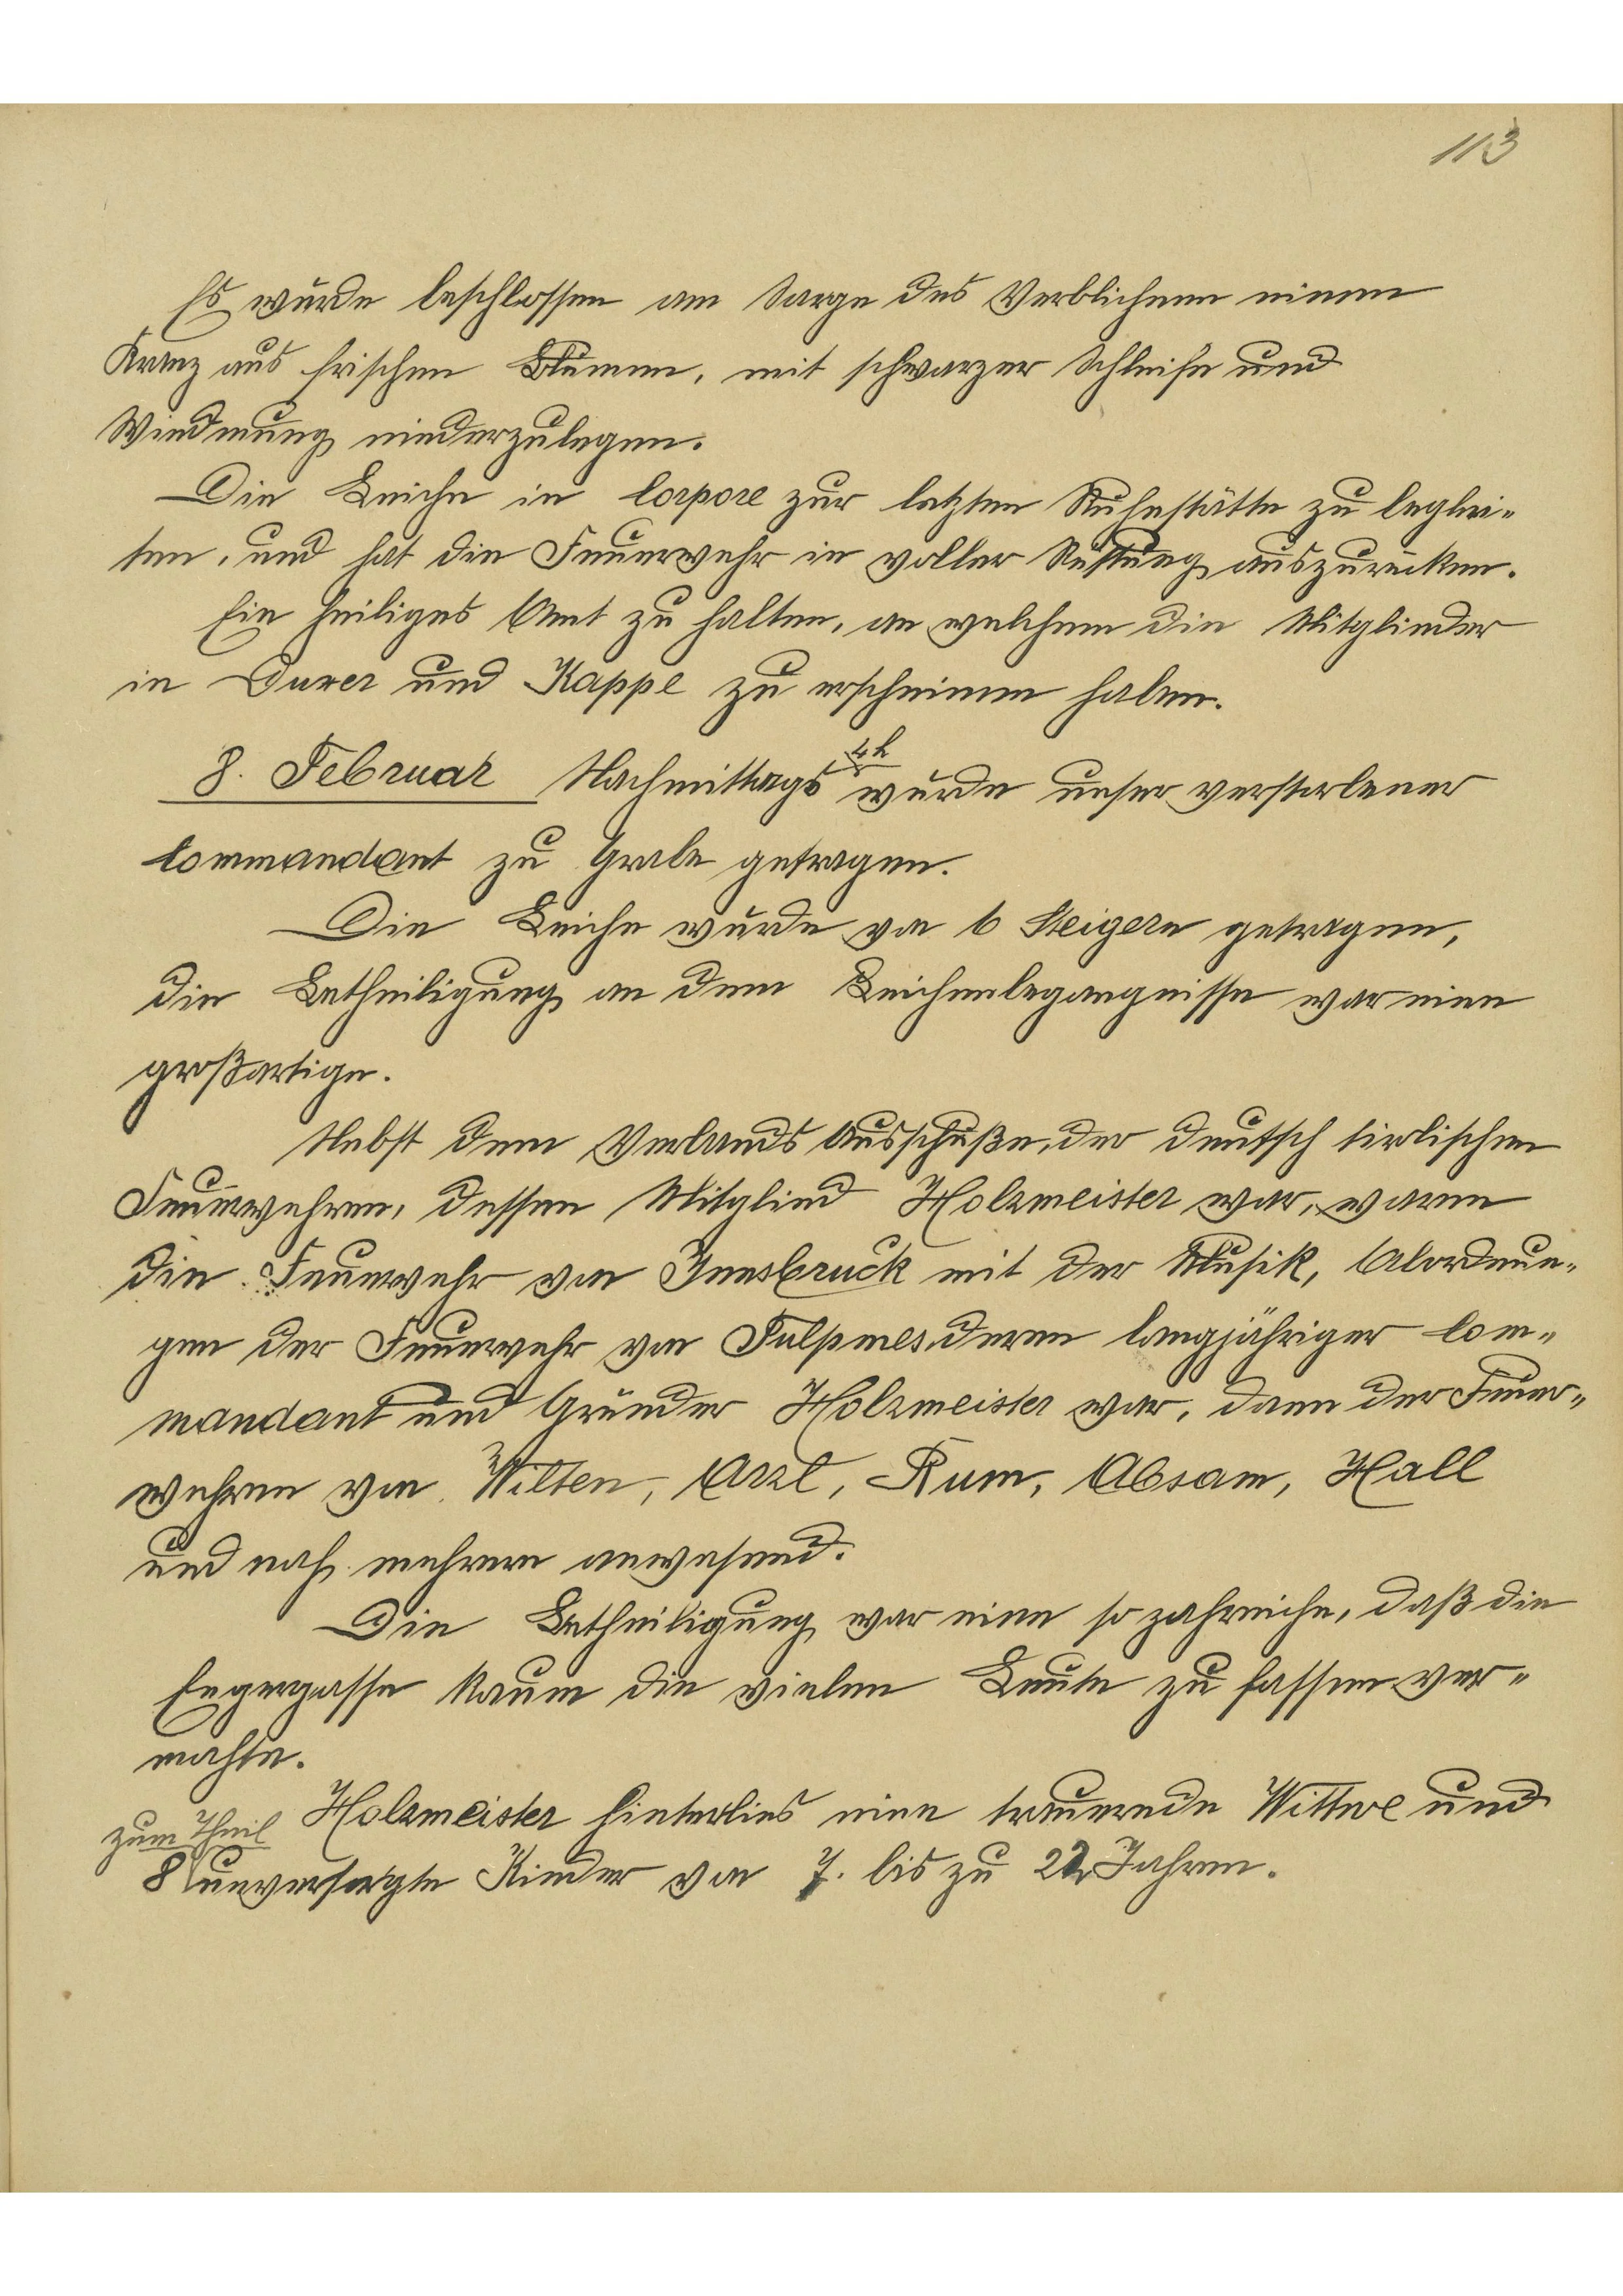 113
Es wurde beschlossen am Sarge des Verblichenen einen
Kranz aus frischen Blumen, mit schwarzer Schleife und
Wiedmung niederzulegen.
Die Leiche in Corpore zur letzten Ruhestätte zu beglei-
ten, und hat die Feuerwehr in voller Rüstung auszurücken.
Ein heiliges Amt zu halten, an welchem die Mitglieder
in und Kappe zu erscheinen haben.
8. Februar Nachmittags 4h wurde unser verstorbener
Commandant zu Grabe getragen.
Die Leiche wurde von 6 Steigern getragen,
die Betheiligung an dem Leichenbegangnisse war eine
großartige.
Nebst dem Verbands Ausschuße, der deutsch tirolischen
Feuerwehren, dessen Mitglied Holzmeister war, waren
die Feuerwehr von Innsbruck mit der Musik, Abordnun-
gen der Feuerwehr von Fulpmes, deren langjähriger Com-
mandant und Gründer Holzmeister war, dann der Feuer-
wehren von Wilten, Arzl, Rum, Absam, Hall
und noch mehrere anwesend.
Die Betheiligung war eine so zahreiche, daß die
Engergasse kaum die vielen Leute zu fassen ver-
mochte.
Holzmeister hinterlies eine trauernde Wittwe und
zum Theil
8 unversorgte Kinder von 7. bis zu 22 Jahren.